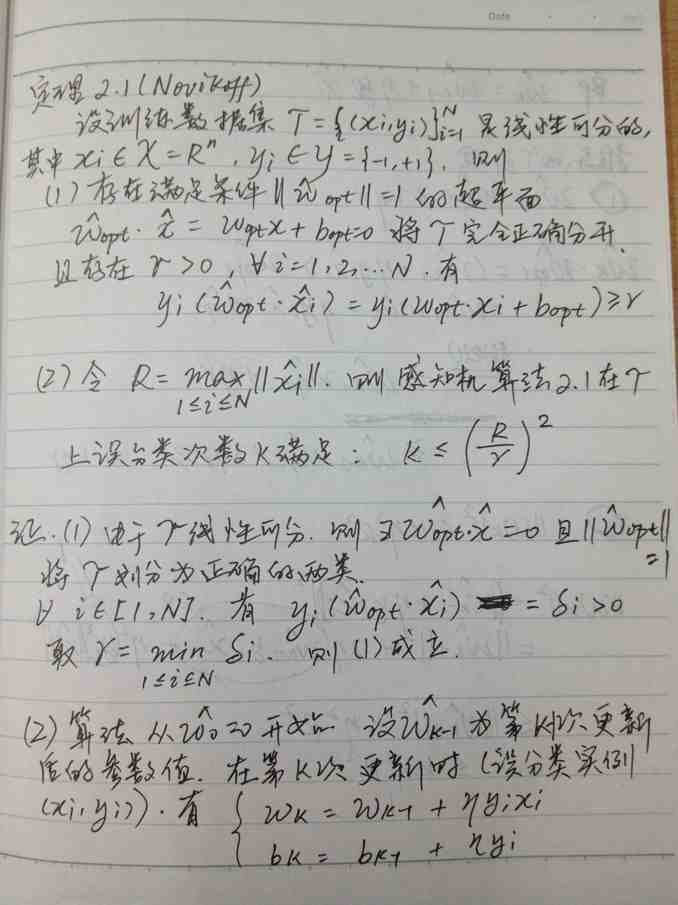 Date
定理 2.1 (Novikoff)
设训练数据集 T = {(xi, yi)}_{i=1}^{N} 是线性可分的,
其中 xi ∈ X = R^n, yi ∈ Y = {-1, +1}, 则
(1) 存在满足条件 ||ŵopt|| = 1 的超平面
ŵopt · x̂ = wopt x + bopt = 0 将 T 完全正确分开.
且存在 γ > 0, ∀ i = 1, 2, ... N. 有
yi (ŵopt · x̂i) = yi (wopt · xi + bopt) ≥ γ
(2) 令 R = max_{1≤i≤N} ||x̂i||. 则感知机算法2.1在T
上误分类次数K满足: K ≤ (R/γ)^2
证. (1) 由于T线性可分. 则 ∃ ŵopt · x̂ = 0 且 ||ŵopt|| = 1
将T划分为正确的两类.
∀ i ∈ [1, N]. 有 yi (ŵopt · x̂i) = δi > 0
取 γ = min_{1≤i≤N} δi. 则 (1) 成立.
(2) 算法从 ŵ0 = 0 开始 设 ŵk-1 为第 k-1次更新
后的参数值. 在第 K次更新时 (误分类实例
(xi, yi)). 有 { wk = wk-1 + ηyixi
bk = bk-1 + ηyi